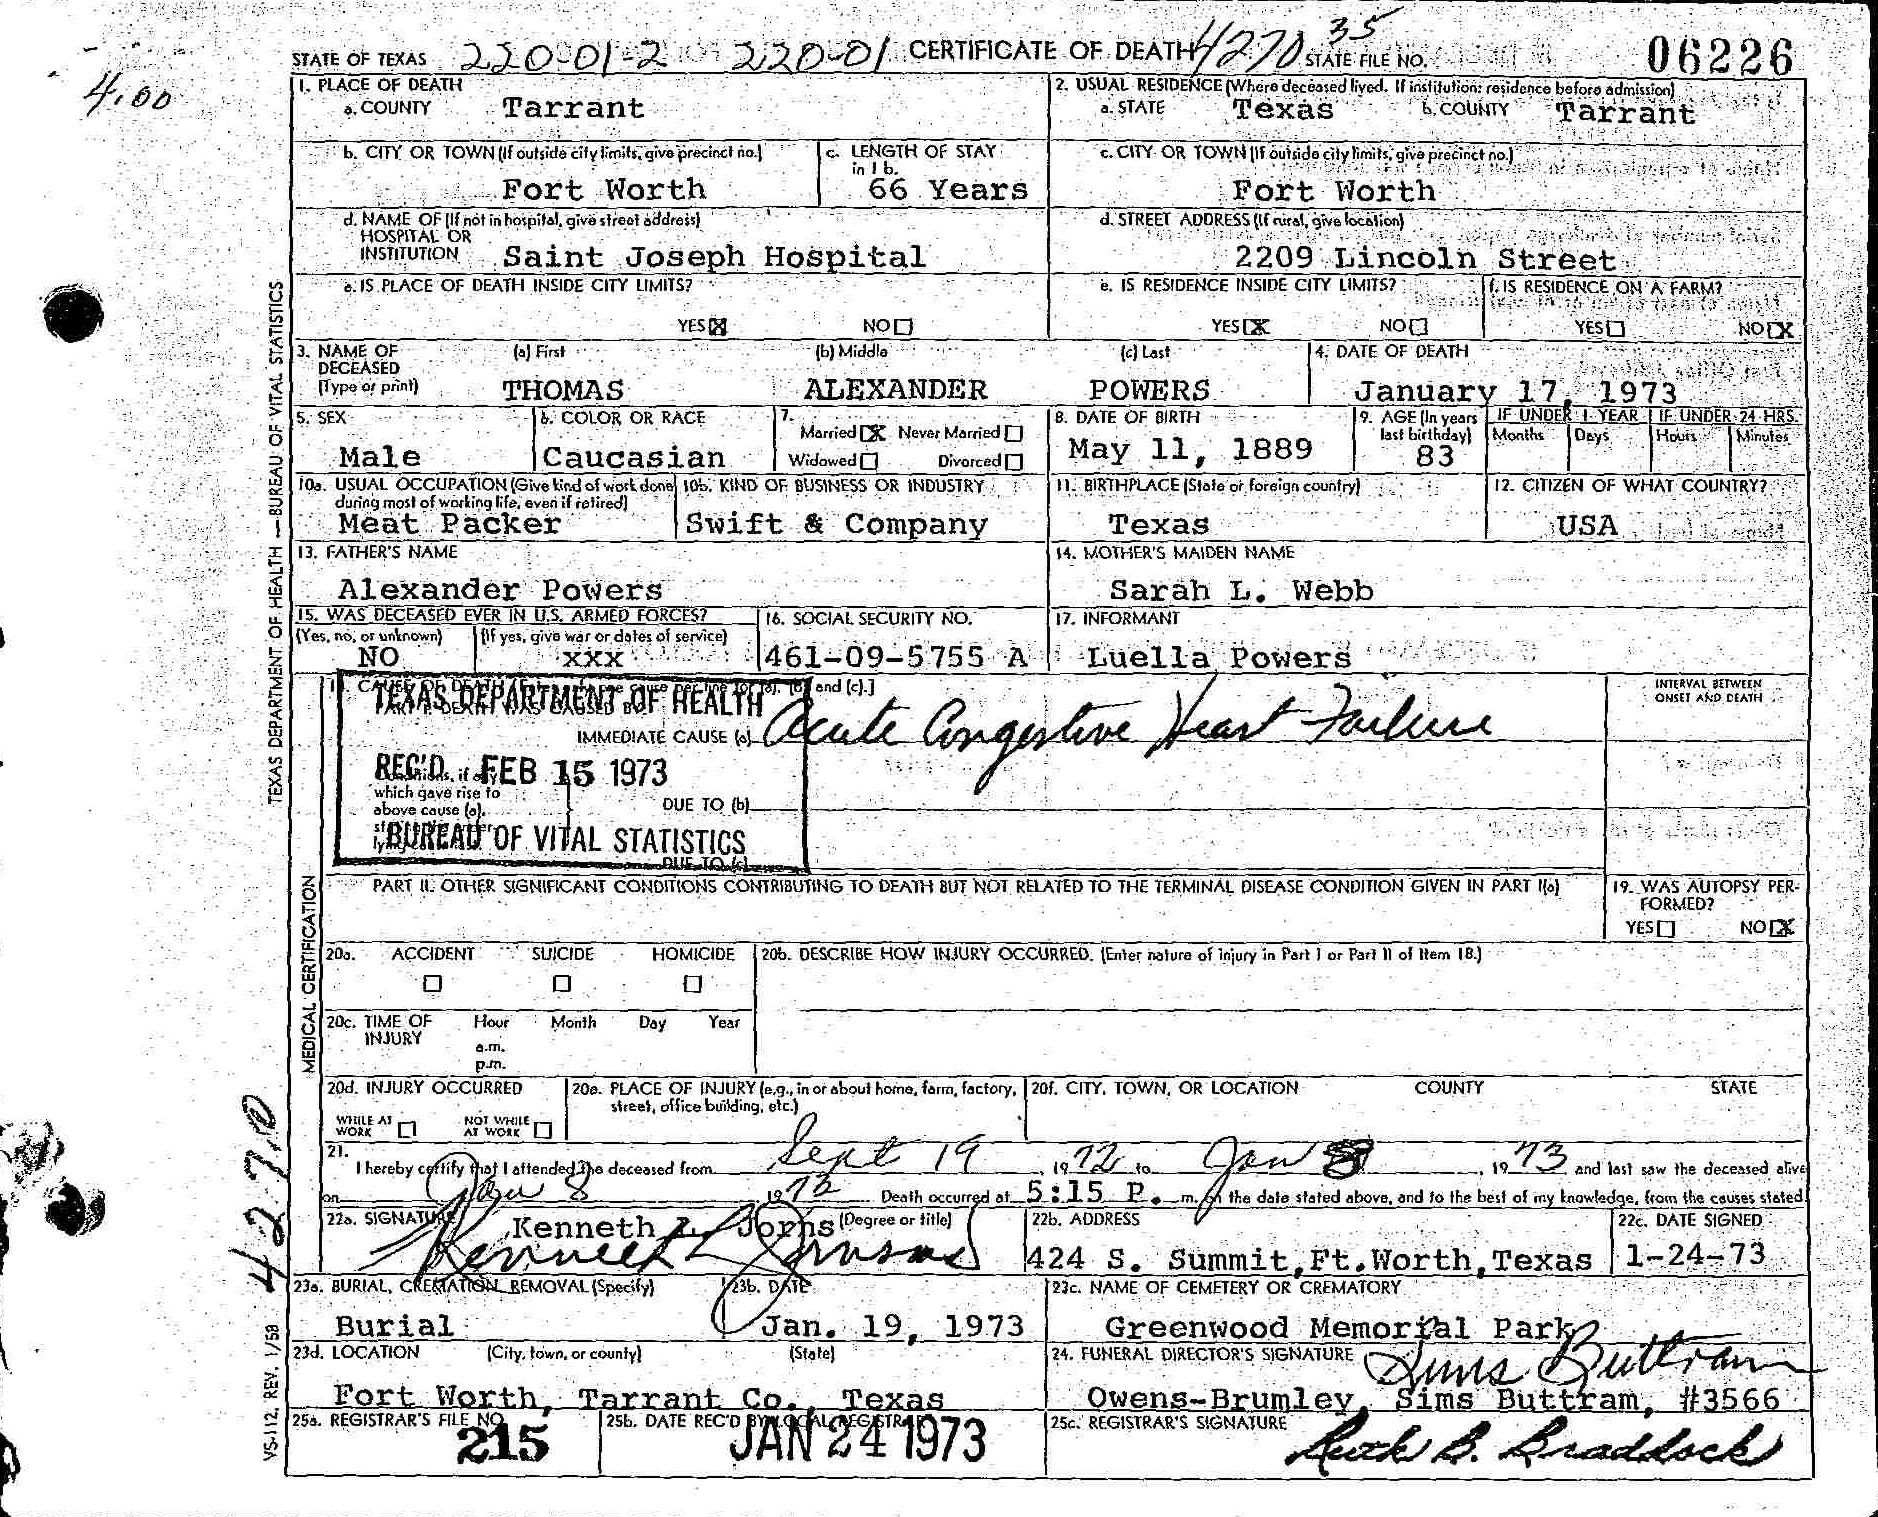 STATE OF TEXAS 220-01-2 220-01 CERTIFICATE OF DEATH 4270 35 STATE FILE NO. 06226
4.00
1. PLACE OF DEATH
a. COUNTY Tarrant
2. USUAL RESIDENCE (Where deceased lived. If institution: residence before admission)
a. STATE Texas b. COUNTY Tarrant
b. CITY OR TOWN (If outside city limits, give precinct no.)
Fort Worth
c. LENGTH OF STAY in 1 b.
66 Years
c. CITY OR TOWN (If outside city limits, give precinct no.)
Fort Worth
d. NAME OF (If not in hospital, give street address)
HOSPITAL OR
INSTITUTION Saint Joseph Hospital
d. STREET ADDRESS (If rural, give location)
2209 Lincoln Street
e. IS PLACE OF DEATH INSIDE CITY LIMITS?
YES X NO
e. IS RESIDENCE INSIDE CITY LIMITS?
YES X NO
f. IS RESIDENCE ON A FARM?
YES NO X
3. NAME OF DECEASED (Type or print)
(a) First (b) Middle (c) Last
THOMAS ALEXANDER POWERS
4. DATE OF DEATH
January 17, 1973
5. SEX
Male
6. COLOR OR RACE
Caucasian
7.
Married X Never Married
Widowed Divorced
8. DATE OF BIRTH
May 11, 1889
9. AGE (In years last birthday)
83
IF UNDER 1 YEAR IF UNDER 24 HRS.
Months Days Hours Minutes
10a. USUAL OCCUPATION (Give kind of work done during most of working life, even if retired)
Meat Packer
10b. KIND OF BUSINESS OR INDUSTRY
Swift & Company
11. BIRTHPLACE (State or foreign country)
Texas
12. CITIZEN OF WHAT COUNTRY?
USA
13. FATHER'S NAME
Alexander Powers
14. MOTHER'S MAIDEN NAME
Sarah L. Webb
15. WAS DECEASED EVER IN U.S. ARMED FORCES?
(Yes, no, or unknown) (If yes, give war or dates of service)
NO xxx
16. SOCIAL SECURITY NO.
461-09-5755 A
17. INFORMANT
Luella Powers
TEXAS DEPARTMENT OF HEALTH
and (c).]
IMMEDIATE CAUSE (a) Acute Congestive Heart Failure
INTERVAL BETWEEN
ONSET AND DEATH
REC'D FEB 15 1973
which gave rise to
above cause (a),
DUE TO (b)
BUREAU OF VITAL STATISTICS
DUE TO (c)
PART II. OTHER SIGNIFICANT CONDITIONS CONTRIBUTING TO DEATH BUT NOT RELATED TO THE TERMINAL DISEASE CONDITION GIVEN IN PART I(a)
19. WAS AUTOPSY PER-
FORMED?
YES NO X
20a. ACCIDENT SUICIDE HOMICIDE
20b. DESCRIBE HOW INJURY OCCURRED. (Enter nature of injury in Part I or Part II of Item 18.)
20c. TIME OF INJURY Hour Month Day Year
a.m.
p.m.
20d. INJURY OCCURRED
WHILE AT WORK NOT WHILE AT WORK
20e. PLACE OF INJURY (e.g., in or about home, farm, factory,
street, office building, etc.)
20f. CITY, TOWN, OR LOCATION COUNTY STATE
21.
I hereby certify that I attended the deceased from Sept 19, 1972 to Jan 8, 1973 and last saw the deceased alive
on Jan 8 1973 Death occurred at 5:15 P. m. on the date stated above, and to the best of my knowledge, from the causes stated
22a. SIGNATURE Kenneth L. Jorns (Degree or title)
22b. ADDRESS
424 S. Summit, Ft. Worth, Texas
22c. DATE SIGNED
1-24-73
23a. BURIAL, CREMATION, REMOVAL (Specify)
Burial
23b. DATE
Jan. 19, 1973
23c. NAME OF CEMETERY OR CREMATORY
Greenwood Memorial Park
23d. LOCATION (City, town, or county) (State)
Fort Worth, Tarrant Co., Texas
24. FUNERAL DIRECTOR'S SIGNATURE Sims Buttram
Owens-Brumley, Sims Buttram, #3566
25a. REGISTRAR'S FILE NO.
215
25b. DATE REC'D BY LOCAL REGISTRAR
JAN 24 1973
25c. REGISTRAR'S SIGNATURE
Ruth B. Braddock
TEXAS DEPARTMENT OF HEALTH — BUREAU OF VITAL STATISTICS
MEDICAL CERTIFICATION
4270
VS-112, REV. 1/58